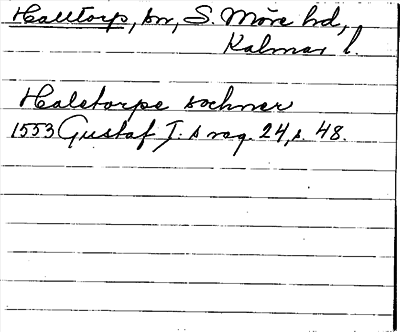 Halltorp, sn, S. Möre hd,
Kalmar l.
Haletorpe sochner
1553 Gustaf I:s reg. 24, s. 48.